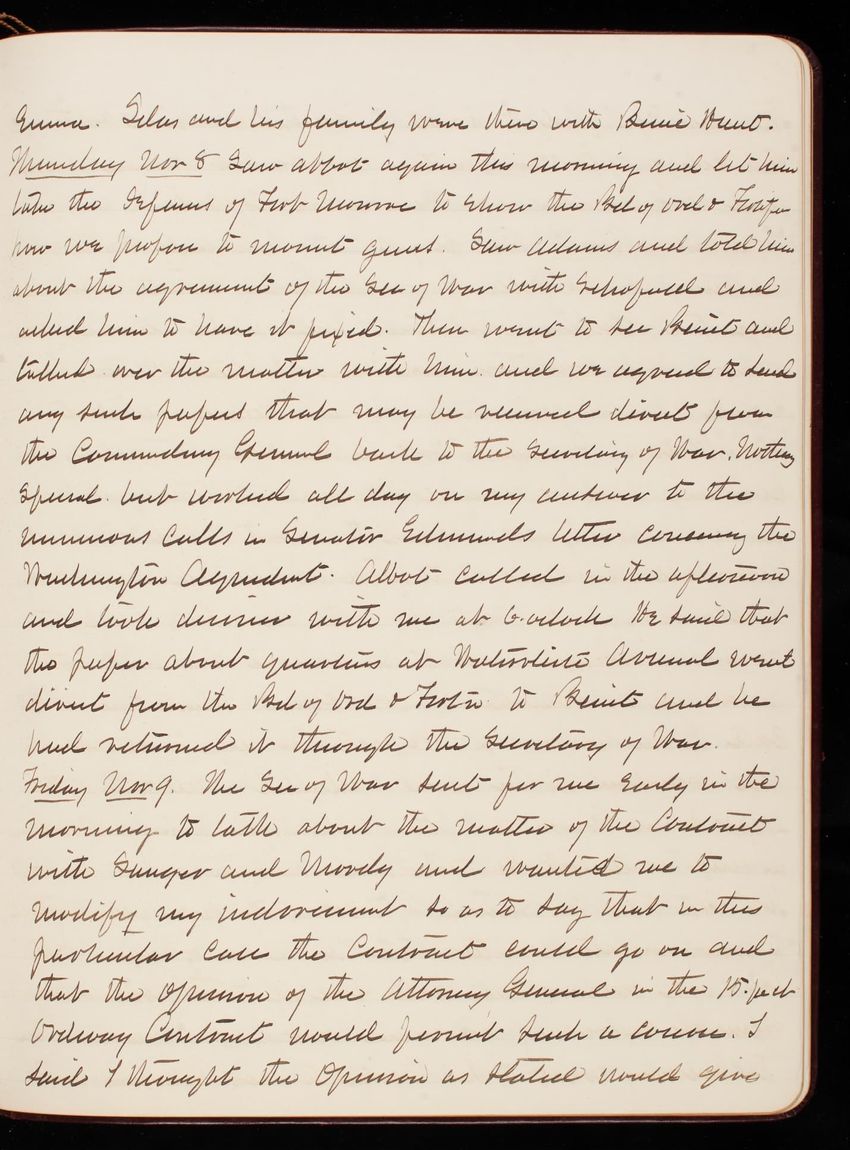 Emma. Silas and his family were there with Bessie Hunt.
Thursday Nov 8 Saw Abbot again this morning and let him
take the Defenses of Fort Monroe to show the Bd of Ord & Fortifn
how we propose to mount guns. Saw Adams and told him
about the agreement of the Sec of War with Schofield and
asked him to have it fixed. Then went to see Benét and
talked over the matter with him and we agreed to send
any such papers that may be received direct from
the Commanding General back to the Secretary of War. Nothing
special but worked all day on my answer to the
numerous calls in Senator Edmunds letter concerning the
Washington Aqueduct. Abbot called in the afternoon
and took dinner with me at 6. oclock He said that
the paper about quarters at Watervliet Arsenal went
direct from the Bd of Ord & Fortn to Benét and he
had returned it through the Secretary of War.
Friday Nov 9. The Sec of War sent for me early in the
morning to talk about the matter of the Contract
with Sanger and Moody and wanted me to
modify my indorsement so as to say that in this
particular case the Contract could go on and
that the Opinion of the Attorney General in the
Ordway Contract would permit such a course. I
said I thought the Opinion as stated would give